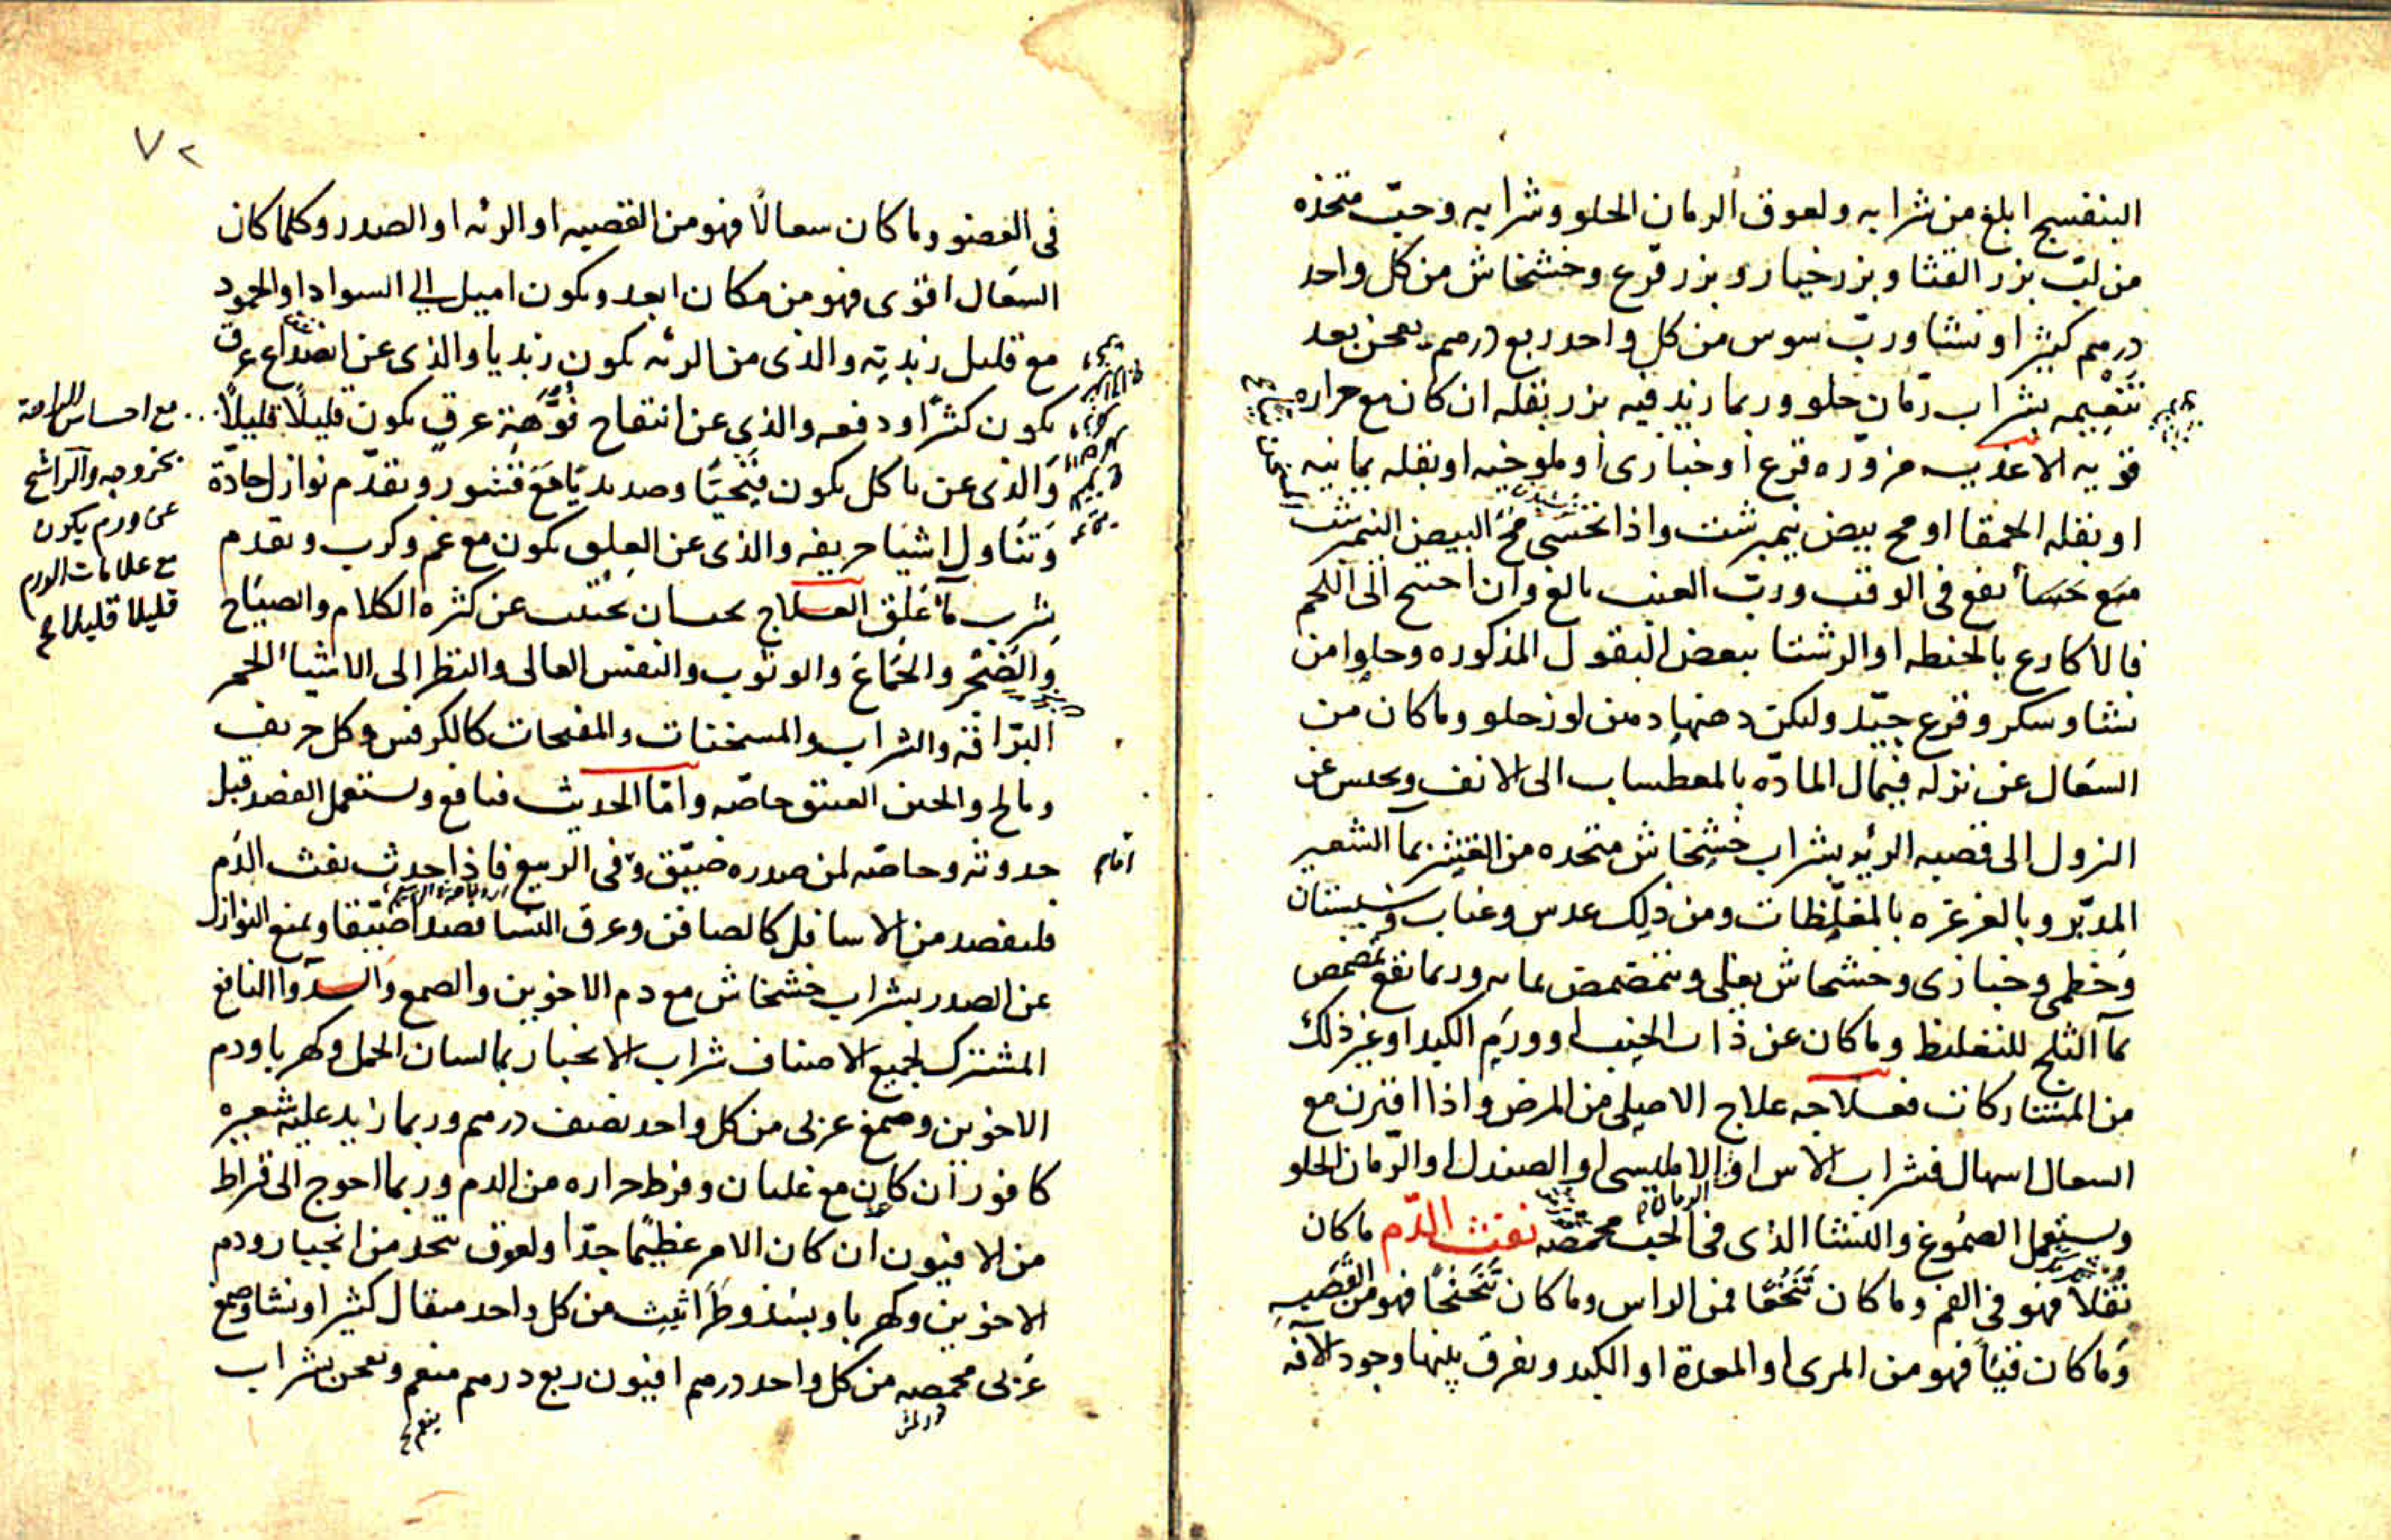 البنفسج ابلغ من شرابه ولعوق الرمان الحلو وشرابه وحب متخذه
من لب بزر القثا وبزر خيار وبزر قرع وخشخاش من كل واحد
درهم كثيرا ونشا ورب سوس من كل واحد ربع درهم يعجن بعد
تنعيمه بشراب رمان حلو وربما زيد فيه بزر بقله ان كان مع حراره
قويه الاغذيه مزوره قرع او خبازى او ملوخيه او بقله يمانيه
او بقله الحمقا او مح بيض نيمبرشت واذا تحسى مح البيض النيمرشت
مع حسا نفع فى الوقت ورب العنب بالغ وان احتيج الى اللحم
فالاكارع بالحنطه او الرشتا ببعض البقول المذكوره وحلوا من
نشا وسكر وقرع جيد وليكن دهنها دهن لوز حلو وما كان من
السعال عن نزله فيمال الماده بالمعطسات الى الانف ويحبس عن
النزول الى قصبه الريه بشراب خشخاش متخده من القشر بما الشعير
المدبر وبالغرغره بالمغلظات ومن ذلك عدس وعناب وسبستان
وخطمى وخبازى وخشخاش يغلى ويتمضمض بمايه وربما نفع تمضمض
بما الثلج للتغليظ وما كان عن ذات الجنب او ورم الكبد او غير ذلك
من المشاركات فعلاجه علاج الاصلى من المرض واذا اقترن مع
السعال اسهال فشراب الاس او الامليسى او الصندل او الرمان الحلو
ويستعمل الصموغ والنشا الذى فى الحب محمصه نفث الدم ما كان
تفلا فهو فى الفم وما كان تنخعا فمن الراس وما كان تنحنحا فهو من القصبه
وما كان قيئا فهو من المرى او المعدة او الكبد ويفرق بينها وجود الافه
٧٢
فى العضو وما كان سعالا فهو من القصبه او الرئه او الصدر وكلما كان
السعال اقوى فهو من مكان ابعد ويكون اميل الى السواد او الجمود
مع قليل زبديه والذى من الرئه يكون زبديا والذى عن انصداع عرق
يكون كثرا ودفعه والذى عن انتفاح فوهة عرق يكون قليلا قليلا
مع احساس
بخروجه والراشح
عن ورم يكون
مع علامات الورم
قليلا قليلا
والذى عن تاكل يكون قيحيا وصديديا مع قشور وتقدم نوازل حادة
وتناول اشيا حريفه والذى عن العلق يكون مع غم وكرب وتقدم
شرب ما علق العلاج يجب ان يجتنب عن كثره الكلام والصياح
والضجر والجماع والوثوب والنفس العالى والنظر الى الاشيا الحمر
البراقه والشراب والمسخنات والمفتحات كالكرفس وكل حريف
ومالح والجبن العتيق خاصه واما الحديث فنافع ويستعمل الفصد قبل
حدوثه وخاصه لمن صدره ضيق وفى الربيع فاذا حدث نفث الدم
فليفصد من الاسافل كالصافن وعرق النسا فصدا ضيقا ويمنع النوازل
عن الصدر بشراب خشخاش مع دم الاخوين والصمغ والدوا النافع
المشترك لجميع الاصناف شراب الانجبار بما لسان الحمل وكهربا ودم
الاخوين وصمغ عربى من كل واحد نصف درهم وربما زيد عليه شعيره
كافور ان كان مع غليان وفرط حراره من الدم وربما احوج الى قراط
من الافيون ان كان الامر عظيما جدا ولعوق يتخد من انجبار ودم
الاخوين وكهربا وبسذ وطراثيث من كل واحد مثقال كثيرا ونشا وصمغ
عربى محمصه من كل واحد درهم افيون ربع درهم منعم ويعجن بشراب